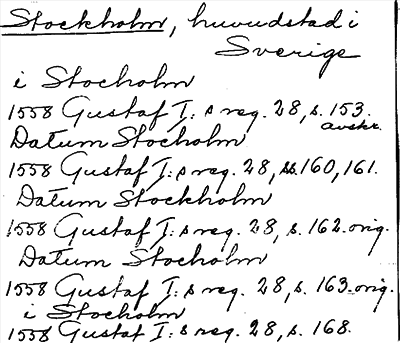 Stockholm, huvudstad i
Sverige
i Stocholm
1558 Gustaf I: s reg. 28, s. 153.
avskr.
Datum Stocholm
1558 Gustaf I: s reg. 28, ss. 160, 161.
Datum Stockholm
1558 Gustaf I: s reg. 28, s. 162. orig.
Datum Stocholm
1558 Gustaf I: s reg. 28, s. 163. orig.
i Stocholm
1558 Gustaf I: s reg. 28, s. 168.